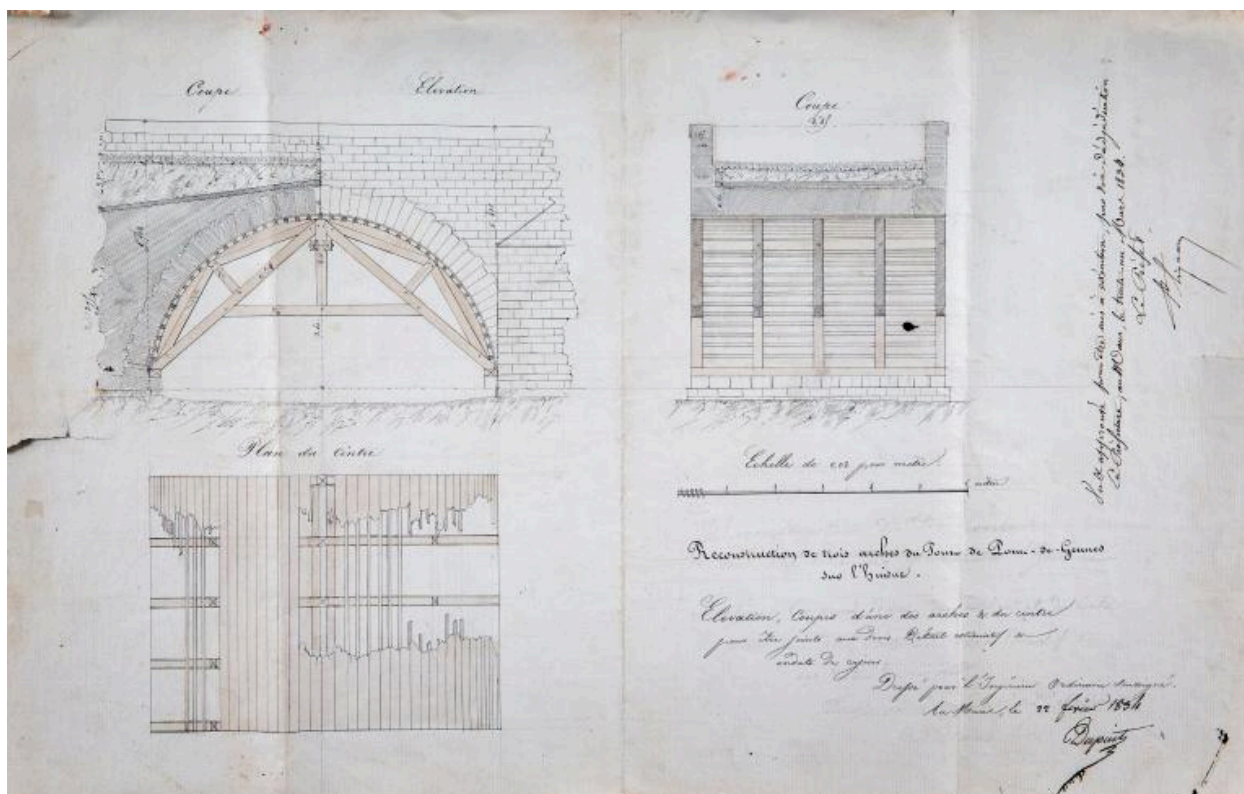 Coupe
Elévation
Coupe
Plan du Cintre
Echelle de 0,02 pour mètre.
5 mètres
Reconstruction de trois arches du Pont de Pont-de-Gennes
sur l'Huisne.
Elévation, Coupes d'une des arches & du cintre
pour être joints aux Devis, Détail estimatif &
Dressé par l'Ingénieur Ordinaire Soussigné.
Au Mans, le 22 février 1834
Vu & approuvé pour être mis à exécution par voie d'adjudication :
La Préfecture, au Mans, le trente un Mars 1834.
Le Préfet.